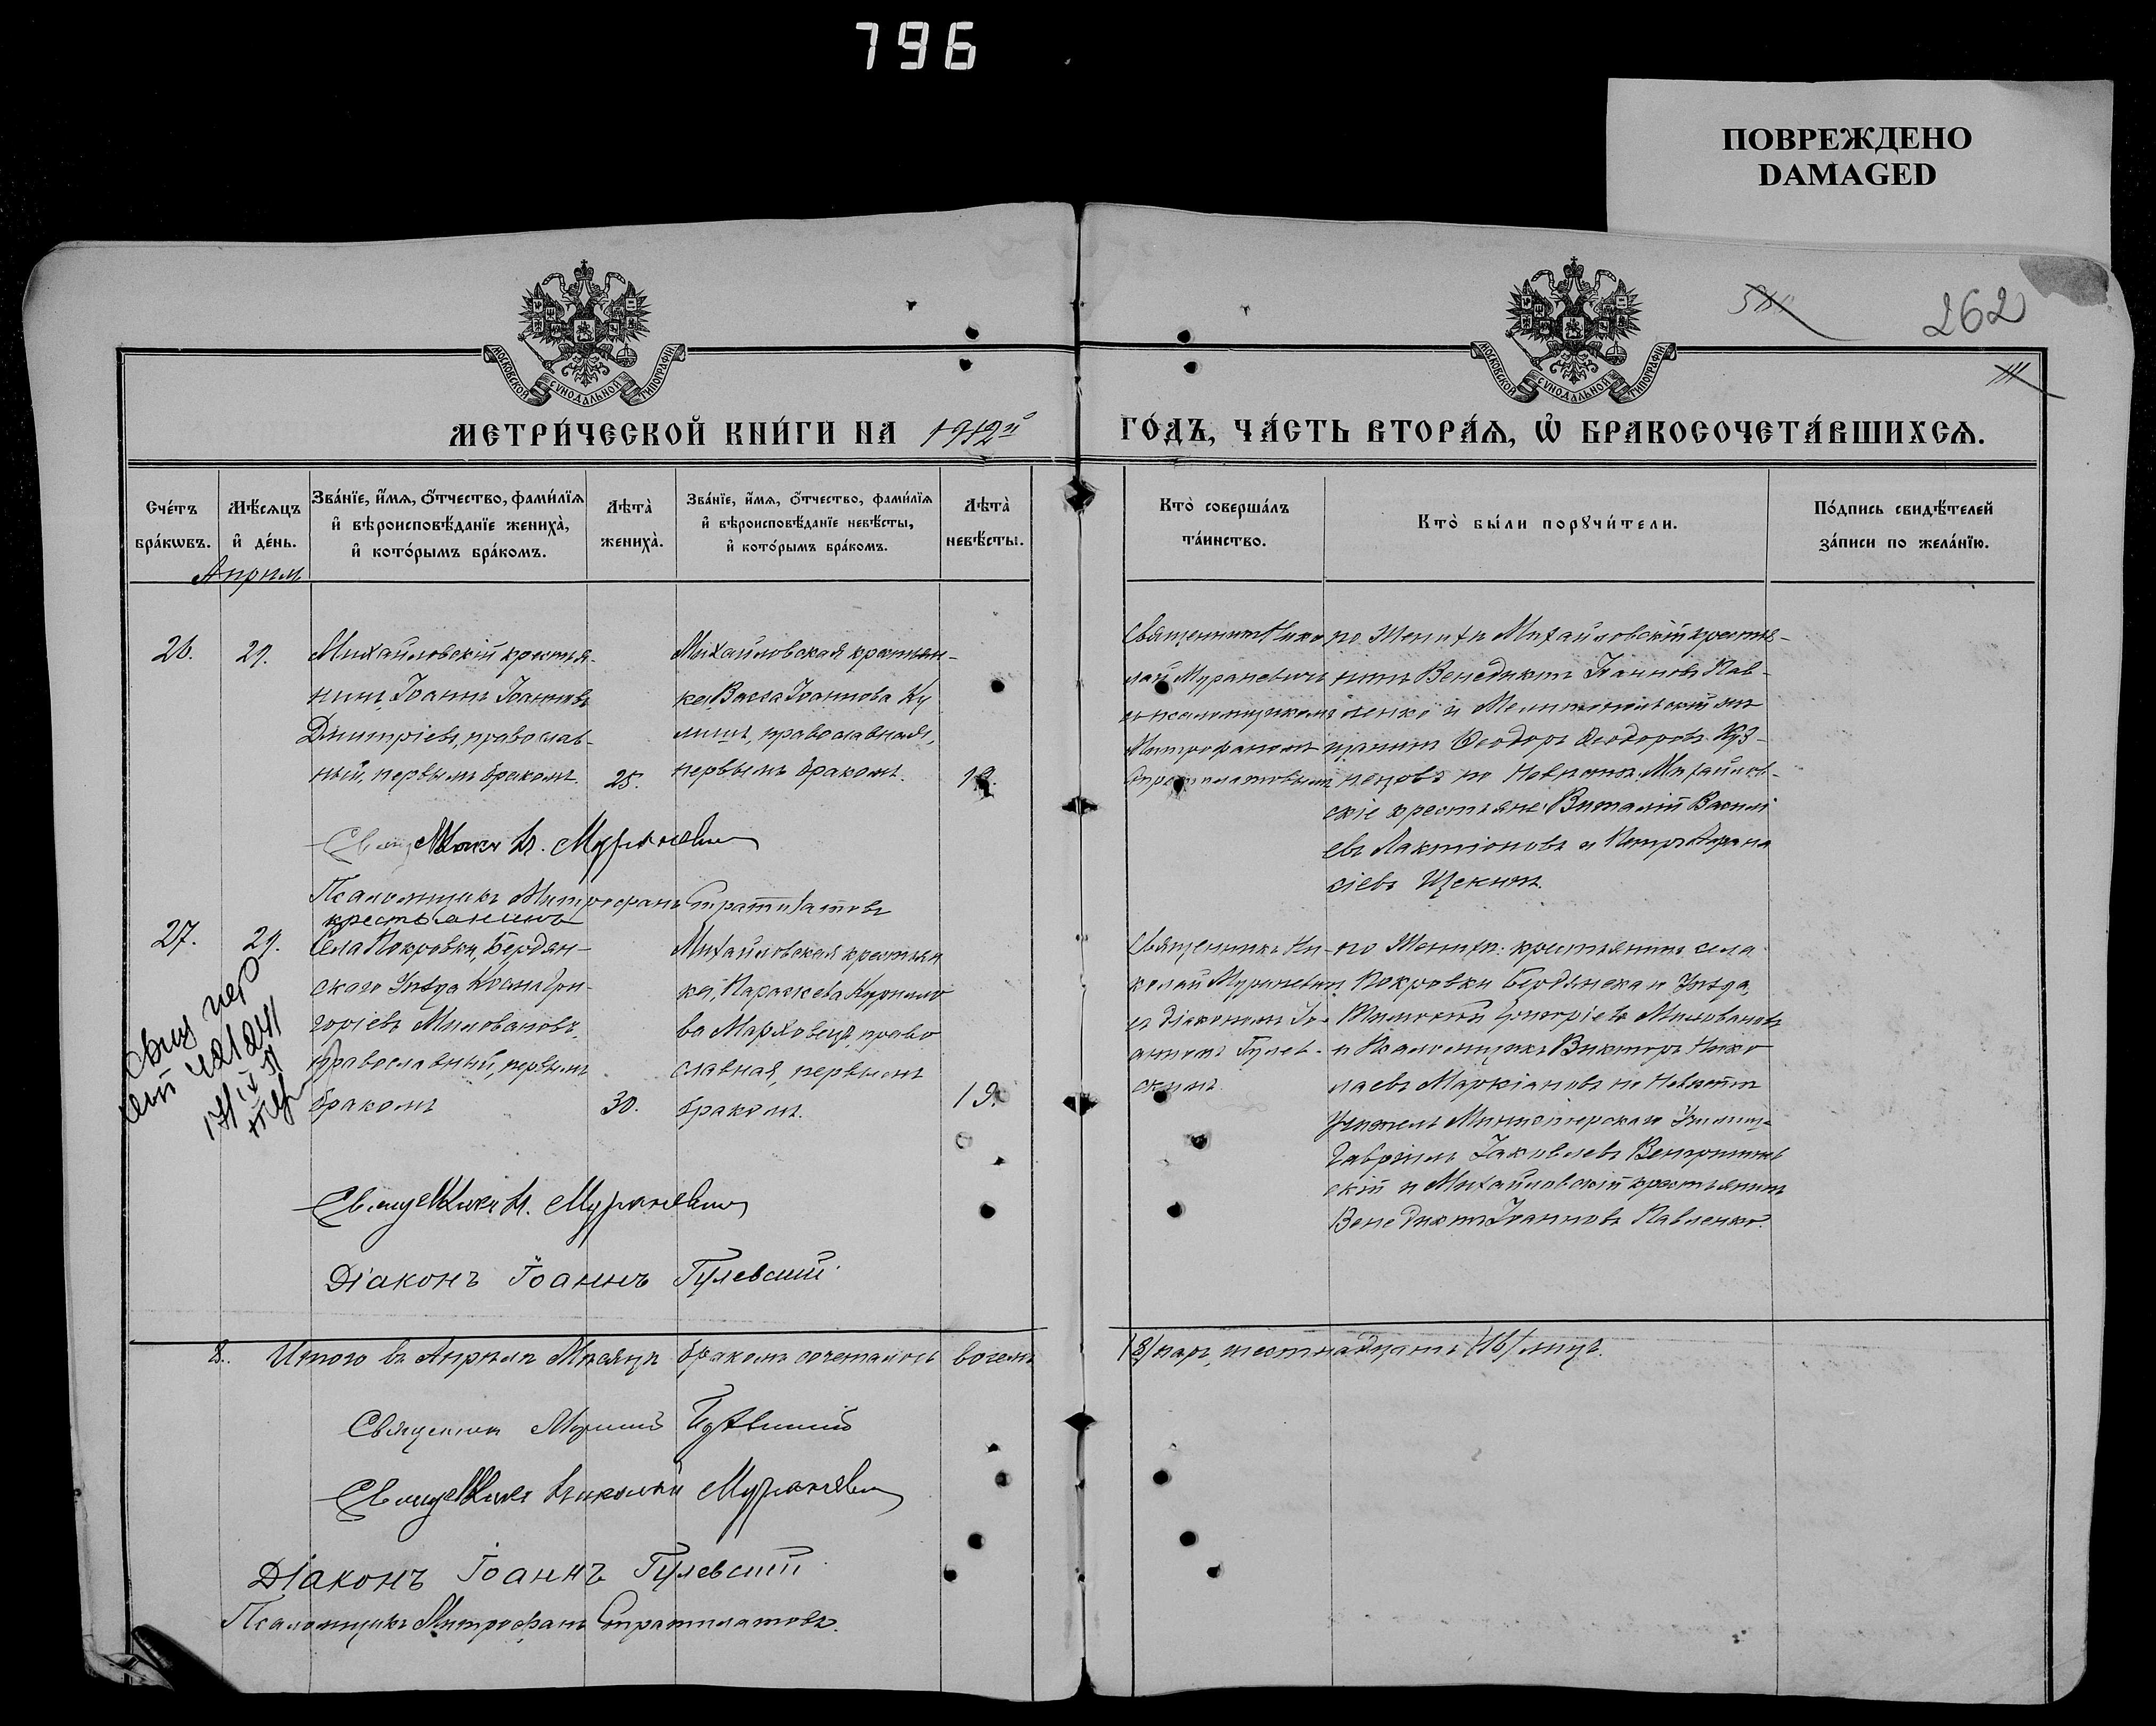 796
ПОВРЕЖДЕНО
DAMAGED
262
МОСКОВСКОЙ СѴНОДАЛЬНОЙ ТИПОГРАФІИ
МОСКОВСКОЙ СѴНОДАЛЬНОЙ ТИПОГРАФІИ
МЕТРИ́ЧЕСКОЙ КНИ́ГИ НА 1912й ГО́ДЪ, ЧА́СТЬ ВТОРА́Ѧ, Ѡ҆ БРАКОСОЧЕТА́ВШИХСѦ.
Сче́тъ бра́кѡвъ.
Мѣ́сѧцъ и҆ де́нь.
Зва́нїе, и҆́мѧ, ѻ҆́тчество, фами́лїѧ и҆ вѣроисповѣ́данїе жениха̀, и҆ кото́рымъ бра́комъ.
Лѣта̀ жениха̀.
Зва́нїе, и҆́мѧ, ѻ҆́тчество, фами́лїѧ и҆ вѣроисповѣ́данїе невѣ́сты, и҆ кото́рымъ бра́комъ.
Лѣта̀ невѣ́сты.
Кто̀ соверша́лъ та́инство.
Кто̀ бы́ли порꙋчи́тели.
По́дпись свидѣ́телей за́писи по жела́нїю.
Апрѣль
26.
29.
Михайловскій крестья-
нинъ, Іоаннъ Іоанновъ
Дмитріевъ, православ-
ный, первымъ бракомъ.
25.
Михайловская крестьян-
ка, Васса Іоаннова Ку
лишъ, православная,
первымъ бракомъ.
19.
Священникъ Нико
лай Мураневичъ
съ псаломщикомъ
Митрофаномъ
Стратилатовымъ
по Женихѣ Михайловскій крестья-
нинъ Венедиктъ Іоанновъ Пав-
ленко и Мелитопольскій мѣ
щанинъ Ѳеодоръ Ѳеодоровъ Куз-
нецовъ по Невѣстѣ: Михайлов-
скіе крестьяне: Виталій Васили
евъ Лактіоновъ и Петръ Аѳана
сіевъ Щекинъ.
Священникъ Н. Мураневич
Псаломщикъ Митрофанъ Стратилатовъ
27.
29.
крестьянинъ
Села Покровки, Бердян-
скаго Уѣзда Косма Гри-
горіевъ Миловановъ,
православный, первымъ
бракомъ
30.
Михайловская крестьян
ка, Параскева Кирилло
ва Марховецъ, право
славная, первымъ
бракомъ.
19.
Священникъ Ни-
колай Мураневичъ
съ діакономъ Іо-
анномъ Гулев-
скимъ
по Женихѣ: крестьянинъ села
Покровки Бердянскаго Уѣзда,
Тимоѳей Григоріевъ Миловановъ
и Псаломщикъ Викторъ Нико
лаевъ Маркіановъ по Невѣстѣ
Учитель Министерскаго Училищ-
Гавріилъ Іаковлевъ
скій и Михайловскій крестьянинъ
Венедиктъ Іоанновъ Павленко.
Священникъ Н. Мураневич
Діаконъ Іоаннъ Гулевскій
8. Итого въ Апрѣлѣ Мѣсяцѣ бракомъ сочеталось восемь /8/ паръ, шестнадцать /16/ лицъ.
Священникъ
Священникъ Николай Мураневич
Діаконъ Іоаннъ Гулевскій
Псаломщикъ Митрофанъ Стратилатовъ.